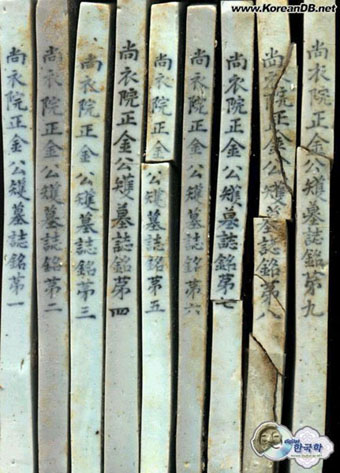 www.KoreanDB.net
尚衣院正金公㺩墓誌銘苐一
尚衣院正金公㺩墓誌銘苐二
尚衣院正金公㺩墓誌銘苐三
尚衣院正金公㺩墓誌銘苐四
尚衣院正金公㺩墓誌銘苐五
尚衣院正金公㺩墓誌銘苐六
尚衣院正金公㺩墓誌銘苐七
尚衣院正金公㺩墓誌銘苐八
尚衣院正金公㺩墓誌銘苐九
digital
한국학